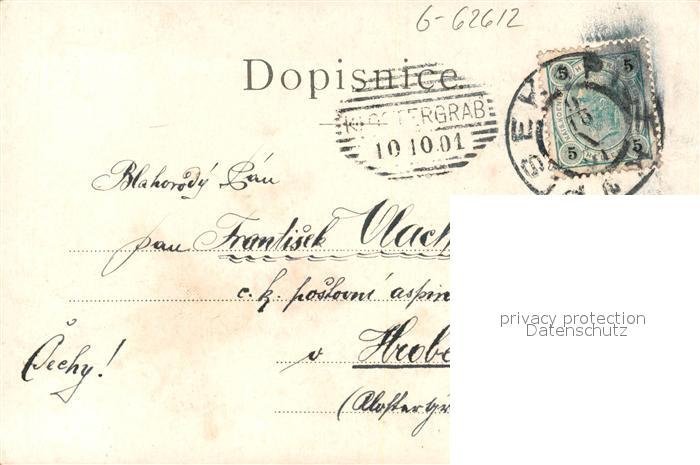 6-62612
Dopisnice
5 5
KLOSTERGRAB
10 10 01
5 5
Blahorodý Pán
pan František Vlach
c. k. poštovní aspir
privacy protection
Datenschutz
Čechy!
v Hrobě
(Klostergr